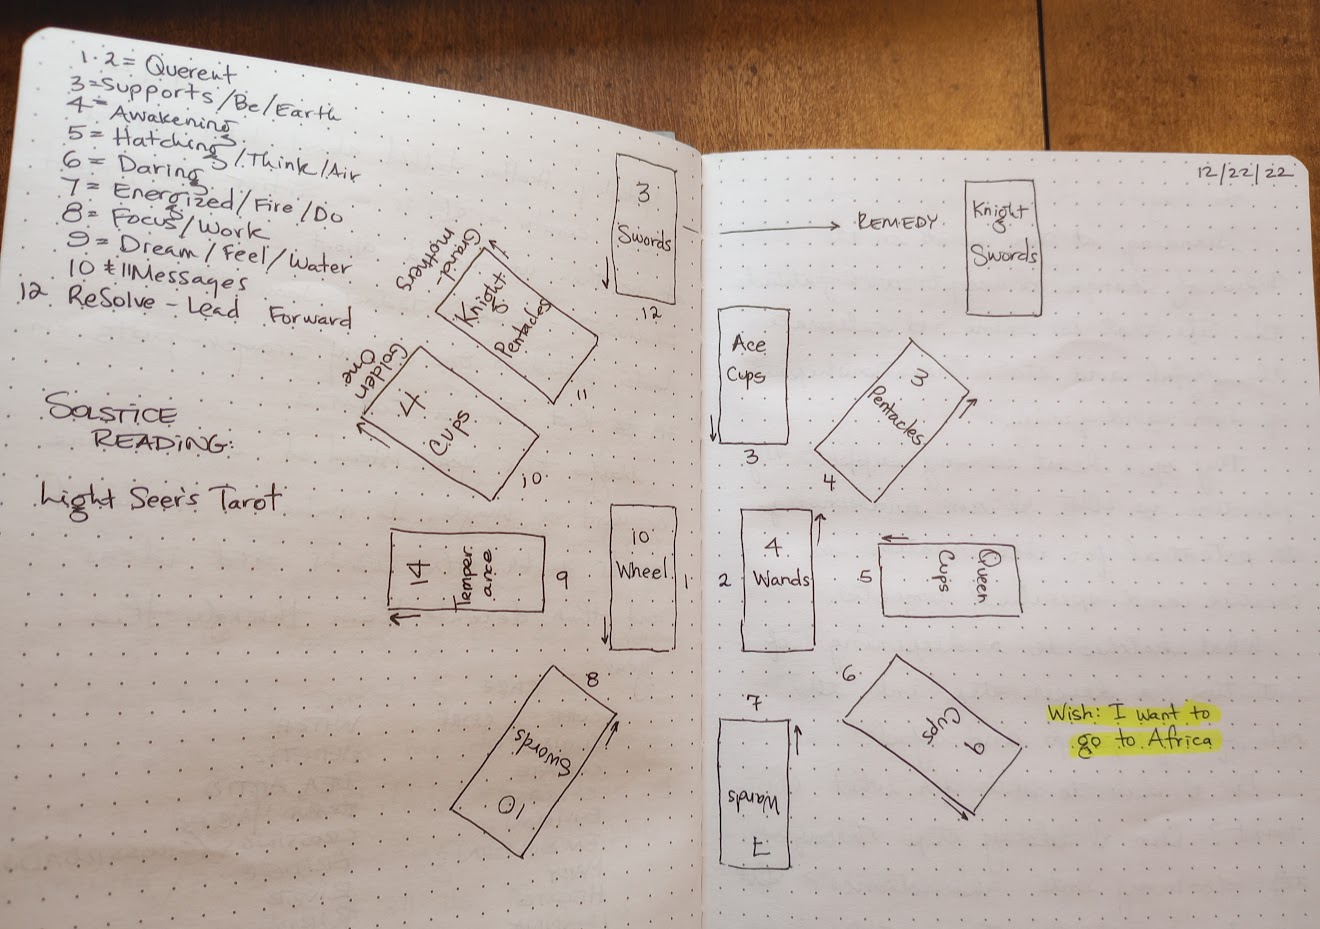 1·2 = Querent
3 = Supports/Be/Earth
4 = Awakening
5 = Hatching/Think/Air
6 = Daring
7 = Energized/Fire/Do
8 = Focus/Work
9 = Dream/Feel/Water
10 & 11 Messages
12 ReSolve - Lead Forward
SOLSTICE
READING:
Light Seer's Tarot
3
Swords
12
Grand-
mothers
Knight
Pentacles
11
Golden
One
4
Cups
10
14
Temper
ance
9
10
Wheel
1
8
Swords
10
12/22/22
REMEDY
Knight
Swords
Ace
Cups
3
3
Pentacles
4
2
4
Wands
5
Queen
Cups
6
9
Cups
7
Wands
7
Wish: I want to
go to Africa